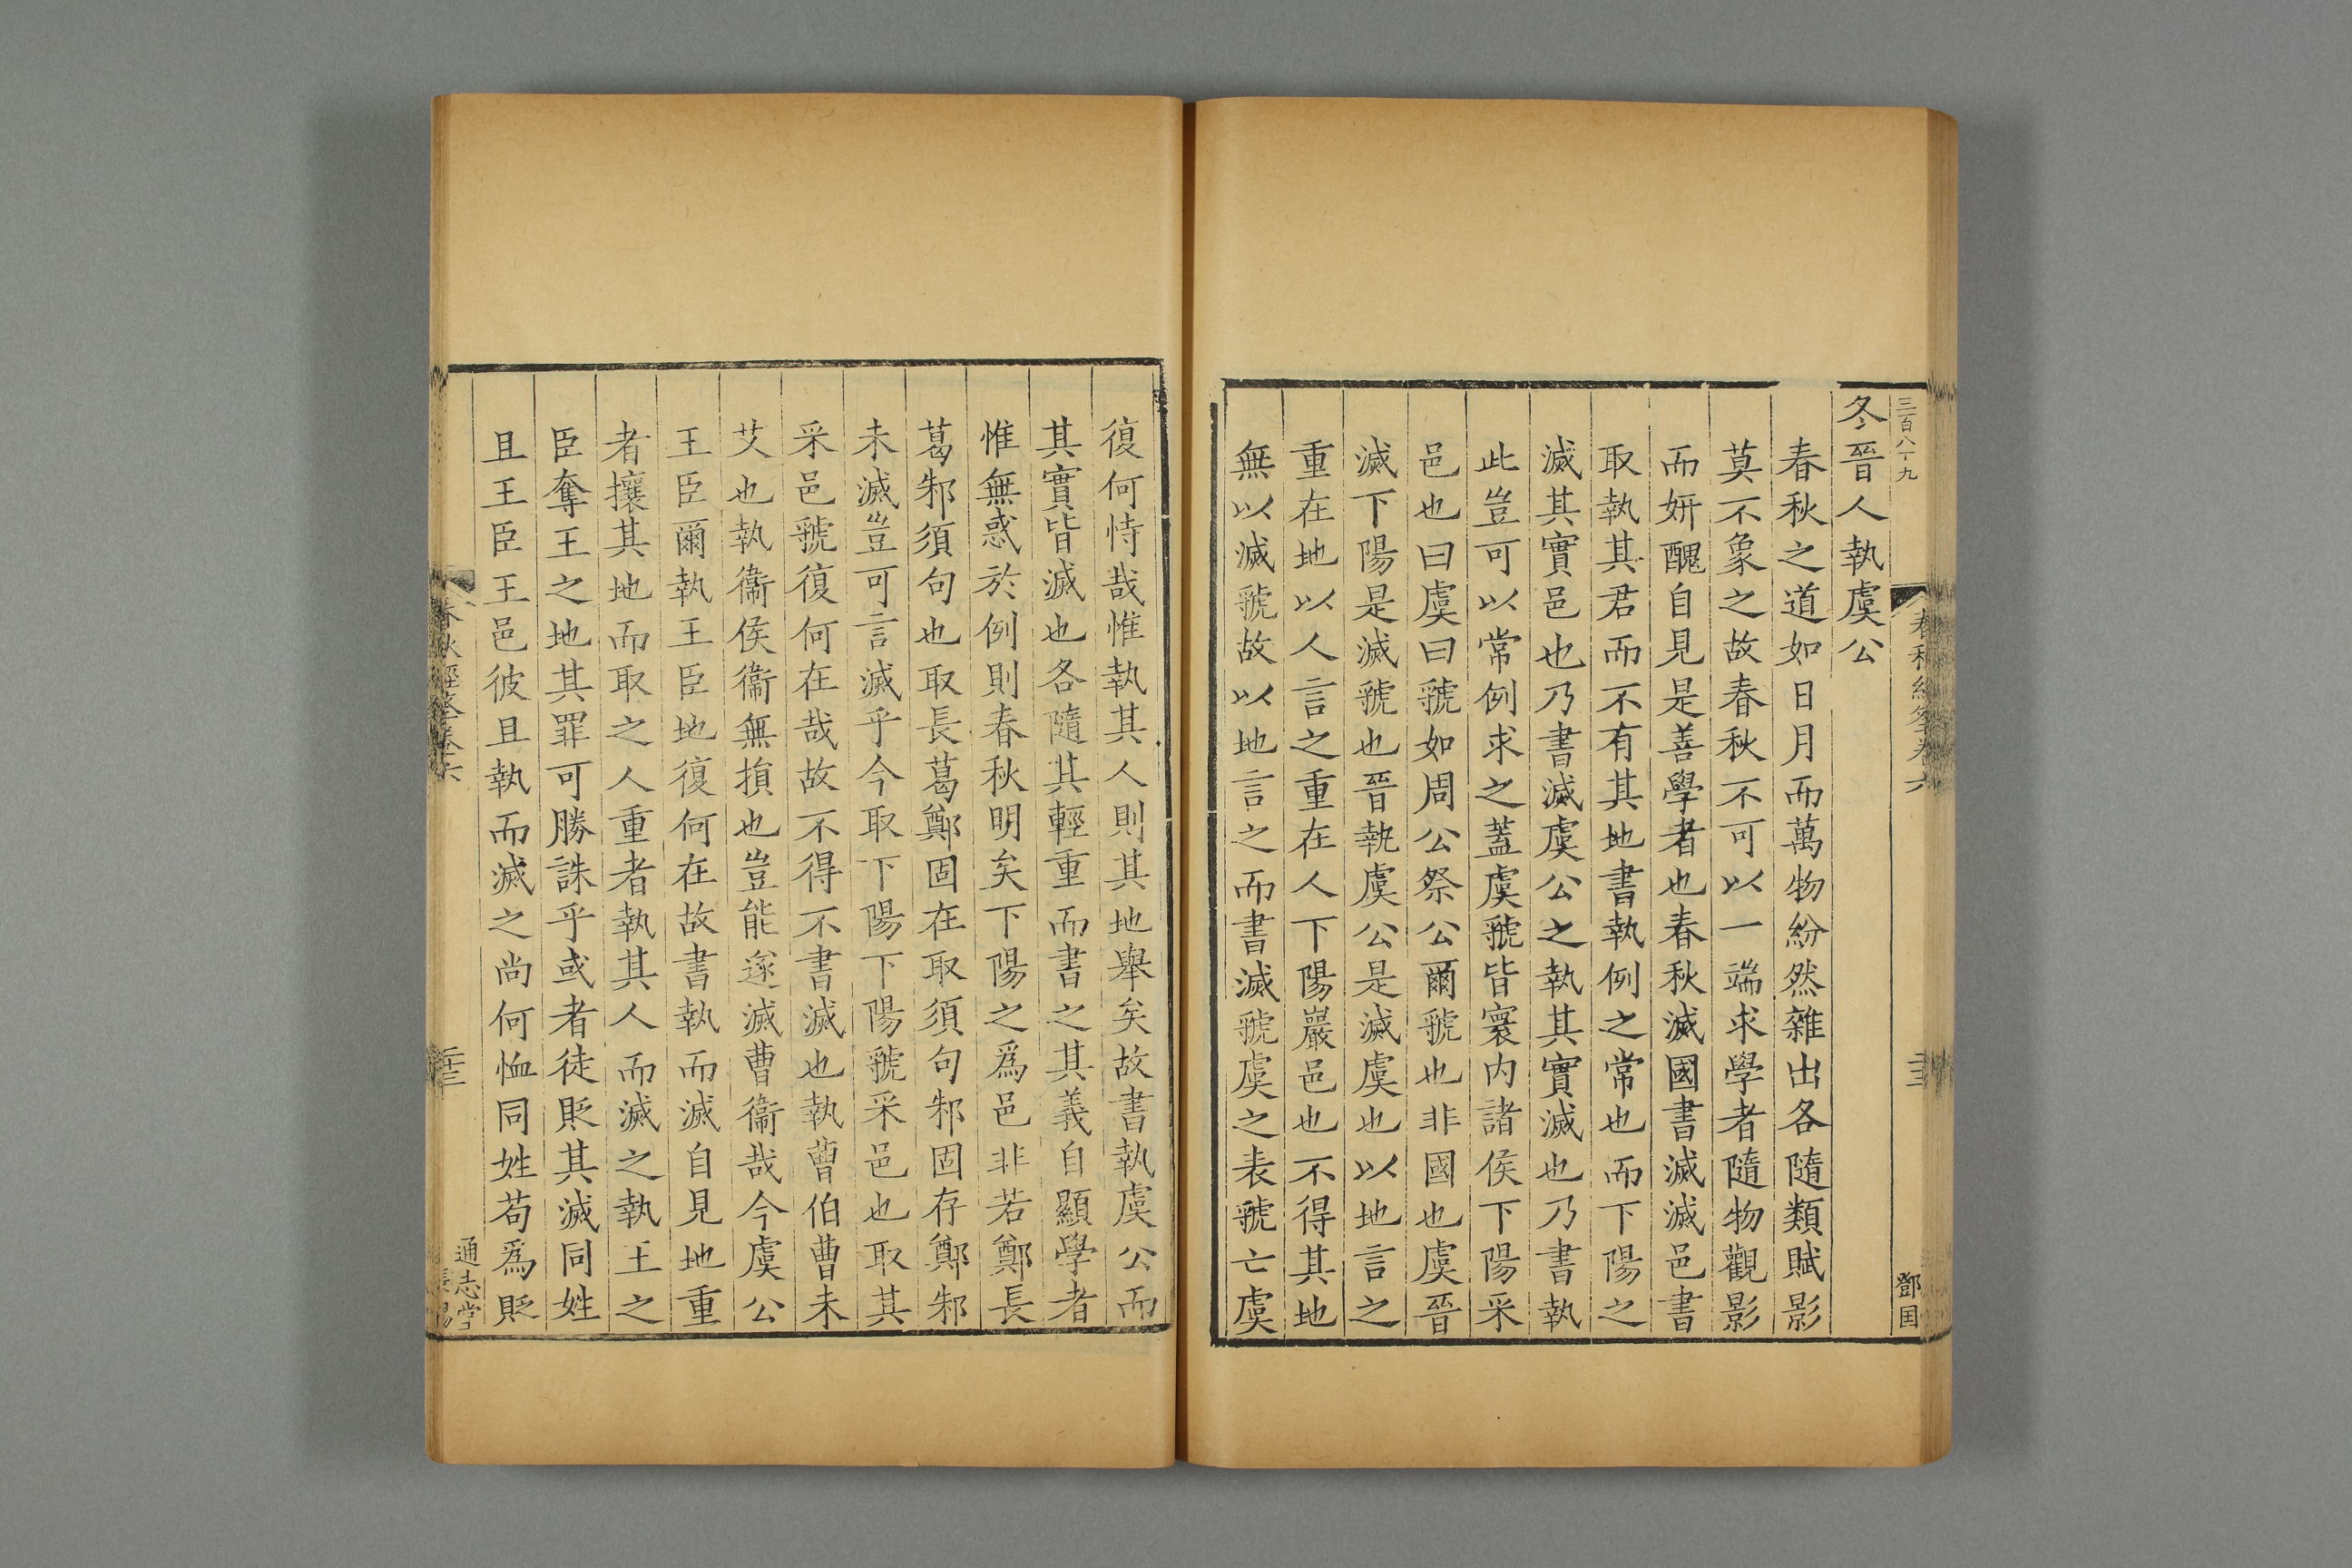 三百八十九
春秋經筌卷六
三十三
鄧国
冬晉人執虞公
春秋之道如日月而萬物紛然雜出各隨類賦影
莫不象之故春秋不可以一端求學者隨物觀影
而妍醜自見是善學者也春秋滅國書滅滅邑書
取執其君而不有其地書執例之常也而下陽之
滅其實邑也乃書滅虞公之執其實滅也乃書執
此豈可以常例求之蓋虞虢皆寰内諸侯下陽采
邑也曰虞曰虢如周公祭公爾虢也非國也虞晉
滅下陽是滅虢也晉執虞公是滅虞也以地言之
重在地以人言之重在人下陽巖邑也不得其地
無以滅虢故以地言之而書滅虢虞之表虢亡虞
復何恃哉惟執其人則其地舉矣故書執虞公而
其實皆滅也各隨其輕重而書之其義自顯學者
惟無惑於例則春秋明矣下陽之爲邑非若鄭長
葛邾須句也取長葛鄭固在取須句邾固存鄭邾
未滅豈可言滅乎今取下陽下陽虢采邑也取其
采邑虢復何在哉故不得不書滅也執曹伯曹未
艾也執衞侯衞無損也豈能遂滅曹衞哉今虞公
王臣爾執王臣地復何在故書執而滅自見地重
者攘其地而取之人重者執其人而滅之執王之
臣奪王之地其罪可勝誅乎或者徒貶其滅同姓
且王臣王邑彼且執而滅之尚何恤同姓苟爲貶
春秋經筌卷六
三十三
通志堂